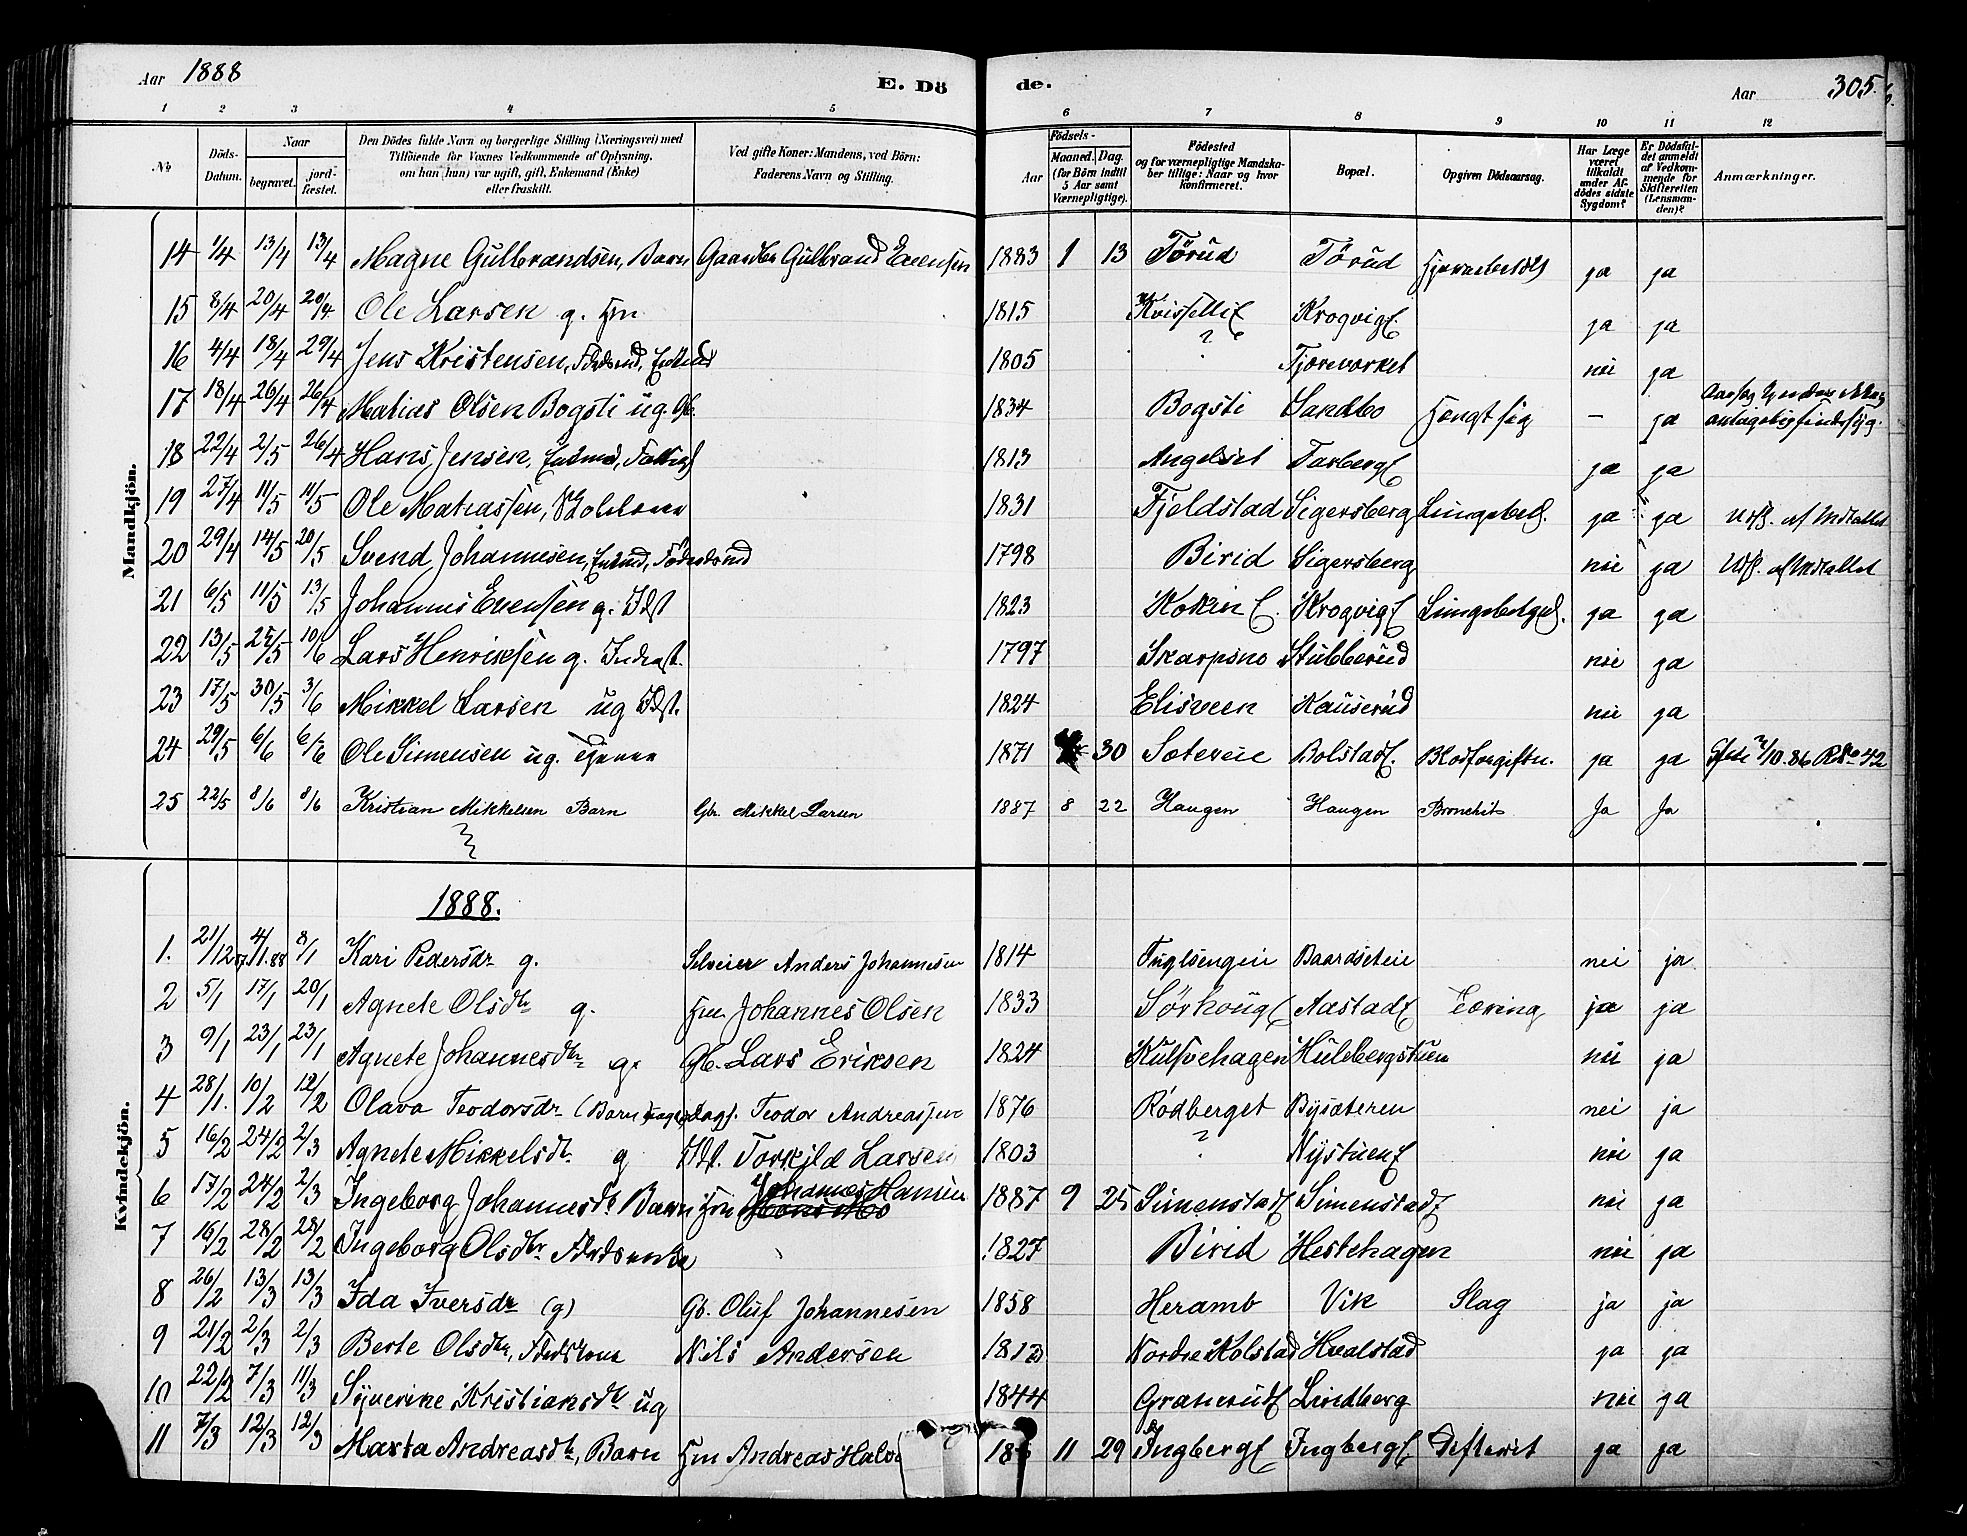 Aar 1888 E. Dö de. Aar 305.
1 2 3 4 5 6 7 8 9 10 11 12
No Döds-Datum. Naar begravet. jord-fæstet. Den Dödes fulde Navn og borgerlige Stilling (Næringsvei) med Tilföiende for Voxnes Vedkommende af Oplysning, om han (hun) var ugift, gift, Enkemand (Enke) eller fraskilt. Ved gifte Koner: Mandens, ved Börn: Faderens Navn og Stilling. Födsels- Aar Maaned. Dag. (for Börn indtil 5 Aar samt Værnepligtige). Födested og for værnepligtige Mandska-ber tillige: Naar og hvor konfirmeret. Bopæl. Opgiven Dödsaarsag. Har Læge været tilkaldt under Af-dödes sidste Sygdom? Er Dödsfal-det anmeldt af Vedkom-mende for Skifteretten (Lensman-den)? Anmærkninger.
Mandkjön.
14 1/4 13/4 13/4 Magne Gulbrandsen, Barn Gaardbr Gulbrand Evensen 1883 1 13 Törud Törud ja ja
15 8/4 20/4 20/4 Ole Larsen g. Hm 1815 Krogvig ja ja
16 4/4 18/4 29/4 Jens Kristensen, 1805 ? nei ja
17 18/4 26/4 26/4 Matias Olsen Bogsti ug. Gb. 1834 Bogsti Sandbo Hængt sig - ja
18 22/4 2/5 26/4 Hans Jensen, Enkmd, 1813 Angelset ja ja
19 27/4 11/5 11/5 Ole Matiassen, 1831 Fjeldstad Sigersberg Lungebet. ja ja Udsk. af Mdtallet
20 29/4 14/5 20/5 Svend Johannesen, Enkmd, Föderaadsmd 1798 Birid Sigersberg nei ja Udsk. af Mdtallet
21 6/5 11/5 13/5 Johannes Evensen g. Idst 1823 Krogvig Lungebetend. ja ja
22 13/5 25/5 10/6 Lars Henriksen g. Inderst. 1797 Skarpsno Stubberud nei ja
23 17/5 30/5 3/6 Mikkel Larsen ug Idst. 1824 Elisveen Kauserud nei ja
24 29/5 6/6 6/6 Ole Simensen ug. Tjener 1871 30 Sætereie Bolstad Blodforgiftn. ja ja 2/10.86 No 42
25 22/5 8/6 8/6 Kristian Mikkelsen Barn Gbr. Mikkel Larsen 1887 8 22 Haugen Haugen Bronchit Ja Ja
Kvindekjön.
1888.
1. 21/12 87. 4/1.88 8/1 Kari Pedersdr g. Selveier Anders Johannesen 1814 Fuglsengen Baardseteie nei ja
2 5/1 17/1 20/1 Agnete Olsdtr g. Hm. Johannes Olsen 1833 Sörhoug Aastad Tæring ja ja
3 9/1 23/1 23/1 Agnete Johannesdtr g. Gb. Lars Eriksen 1824 Kulsvehagen Hulebergstuen nei ja
4 28/1. 10/2 12/2 Olava Teodorsdr (Barn) Dags. Teodor Andreassen 1876 Rödberget Bysæteren nei ja
5 16/2 24/2 2/3 Agnete Mikkelsdtr g Idst. Torkjld Larsen 1803 ? Nystuen nei ja
6 17/2 24/2 2/3 Ingeborg Johannesdtr Barn Hm Johannes Hansen 1887 9 25 Simenstad Simenstad nei ja
7 16/2 28/2 28/2 Ingeborg Olsdtr Fdrdsenke 1827 Birid Hestehagen nei ja
8 26/2 13/3 13/3 Ida Iversdr (g) Gb. Oluf Johannesen 1858 Heramb Vik Slag ja ja
9 21/2 2/3 2/3 Berte Olsdtr, Fdrdskone Nils Andersen Nordre Kolstad Hvalstad ja ja
10 22/2 7/3 11/3 Syverine Kristiansdtr ug 1844 Granerud Lindberg nei ja
11 7/3 12/3 12/3 Marta Andreasdtr, Barn Hm Andreas Halv 18 11 29 Ingberg Ingberg Difterit ja ja